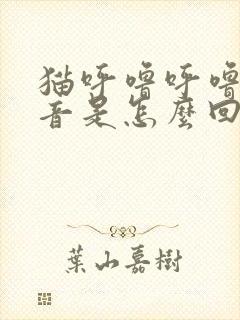 猫呼噜呼噜
音是怎麼回
葉山嘉樹